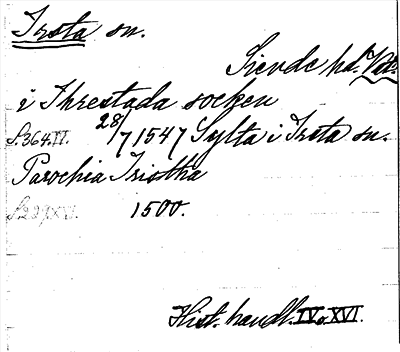 Irsta sn.
Siende hd. Vstm.
i Threstada socken
S. 364. II. 28/7 1547 Sylta i Irsta sn.
Parochia Triostha
S. 229. XVI. 1500.
Hist. handl. IV o XVI.